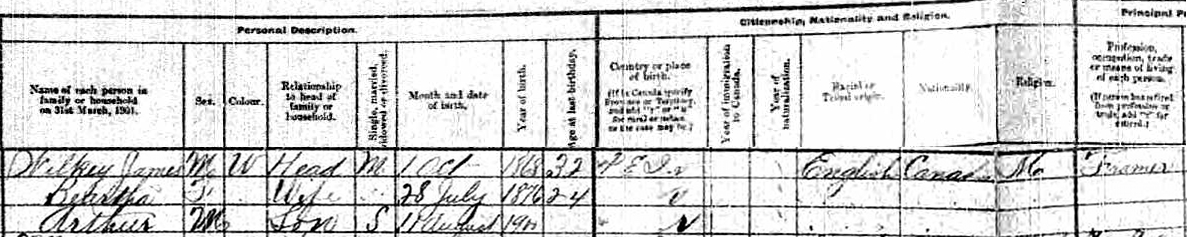 Personal Description.
Citizenship, Nationality and Religion.
Principal
Name of each person in family or household on 31st March, 1901.
Sex.
Colour.
Relationship to head of family or household.
Single, married, widowed or divorced.
Month and date of birth.
Year of birth.
Age at last birthday.
Country or place of birth.
(If in Canada specify Province or Territory, and add "r" or "u" for rural or urban as the case may be.)
Year of immigration to Canada.
Year of naturalization.
Racial or Tribal origin.
Nationality.
Religion.
Profession, occupation, trade or means of living of each person.
(If person has retired from profession or trade, add "r" for retired.)
Wilkey James M W Head M 1 Oct 1868 32 P E I r English Canada Me Framer
Beartha F " Wife " 28 July 1876 24 " r
Arthur M Son S 11 August " r